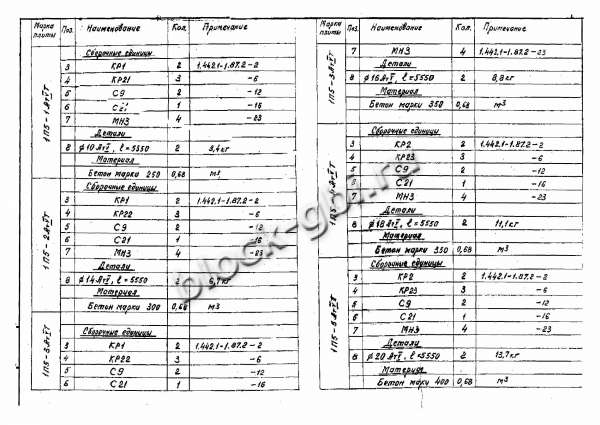 Марка плиты Поз. Наименование Кол. Примечание
1П5-1АтVТ
Сборочные единицы
3 КР1 2 1.442.1-1.87.2-2
4 КР21 3 -6
5 С9 2 -12
6 С21 1 -16
7 МН3 4 -23
Детали
8 ф10АтV, ℓ=5550 2 3,4кг
Материал
Бетон марки 250 0,68 м³
1П5-2АтVТ
Сборочные единицы
3 КР1 2 1.442.1-1.87.2-2
4 КР22 3 -6
5 С9 2 -12
6 С21 1 -16
7 МН3 4 -23
Детали
8 ф14АтV, ℓ=5550 2 6,7кг
Материал
Бетон марки 300 0,68 м3
1П5-3АтVТ
Сборочные единицы
3 КР1 2 1.442.1-1.87.2-2
4 КР22 3 -6
5 С9 2 -12
6 С21 1 -16
Марка плиты Поз. Наименование Кол. Примечание
1П5-3АтVТ
7 МН3 4 1.442.1-1.87.2-23
Детали
8 ф16АтV, ℓ=5550 2 8,8кг
Материал
Бетон марки 350 0,68 м³
Сборочные единицы
3 КР2 2 1.442.1-1.87.2-2
4 КР23 3 -6
5 С9 2 -12
6 С21 1 -16
7 МН3 4 -23
Детали
8 ф18АтV, ℓ=5550 2 11,1кг
Материал
Бетон марки 350 0,68 м³
1П5-5АтVТ
Сборочные единицы
3 КР2 2 1.442.1-1.87.2-2
4 КР23 3 -6
5 С9 2 -12
6 С21 1 -16
7 МН3 4 -23
Детали
8 ф20АтV, ℓ=5550 2 13,7кг
Материал
Бетон марки 400 0,68 м³
block-gbi.ru